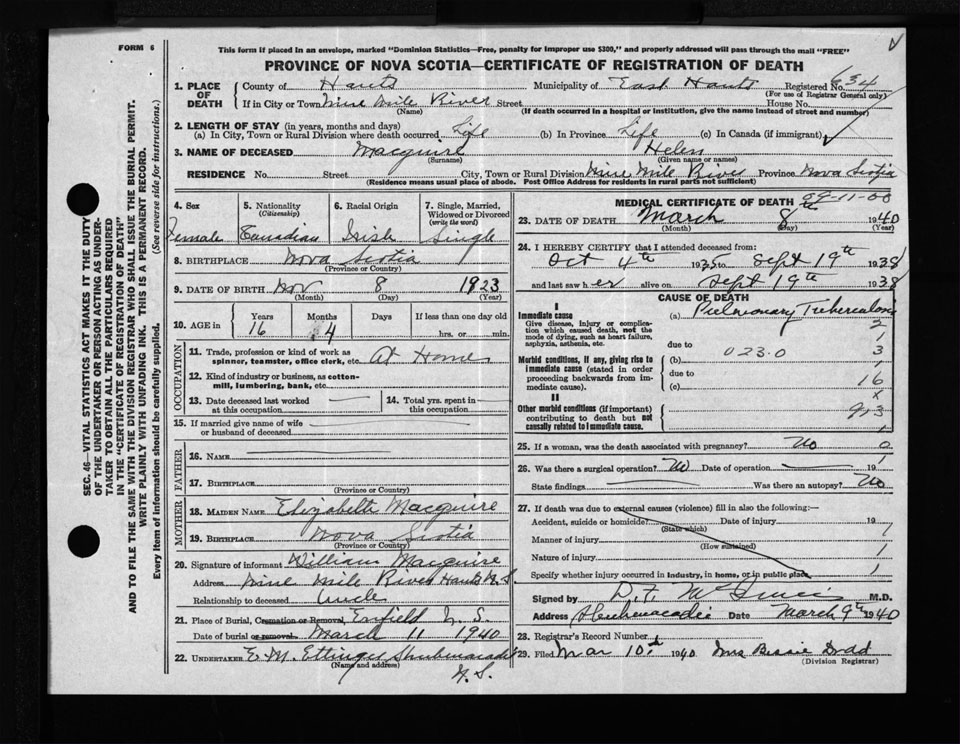 FORM 6
This form if placed in an envelope, marked "Dominion Statistics—Free, penalty for improper use $300," and properly addressed will pass through the mail "FREE"
PROVINCE OF NOVA SCOTIA—CERTIFICATE OF REGISTRATION OF DEATH
SEC. 46—VITAL STATISTICS ACT MAKES IT THE DUTY
OF THE UNDERTAKER OR PERSON ACTING AS UNDER-
TAKER TO OBTAIN ALL THE PARTICULARS REQUIRED
IN THE "CERTIFICATE OF REGISTRATION OF DEATH"
AND TO FILE THE SAME WITH THE DIVISION REGISTRAR WHO SHALL ISSUE THE BURIAL PERMIT.
WRITE PLAINLY WITH UNFADING INK. THIS IS A PERMANENT RECORD.
Every item of information should be carefully supplied. (See reverse side for instructions.)
1. PLACE OF DEATH County of Hants Municipality of East Hants Registered No. 634
(For use of Registrar General only)
If in City or Town Nine Mile River Street House No.
(Name) (If death occurred in a hospital or institution, give the name instead of street and number)
2. LENGTH OF STAY (in years, months and days)
(a) In City, Town or Rural Division where death occurred Life (b) In Province Life (c) In Canada (if immigrant)
3. NAME OF DECEASED Macguire Helen
(Surname) (Given name or names)
RESIDENCE No. Street City, Town or Rural Division Nine Mile River Province Nova Scotia
(Residence means usual place of abode. Post Office Address for residents in rural parts not sufficient)
4. Sex 5. Nationality (Citizenship) 6. Racial Origin 7. Single, Married, Widowed or Divorced (write the word)
Female Canadian Irish Single
8. BIRTHPLACE Nova Scotia
(Province or Country)
9. DATE OF BIRTH Nov 8 1923
(Month) (Day) (Year)
10. AGE in Years Months Days If less than one day old
16 4 hrs. or min.
OCCUPATION
11. Trade, profession or kind of work as spinner, teamster, office clerk, etc. At Home
12. Kind of industry or business, as cotton-mill, lumbering, bank, etc.
13. Date deceased last worked at this occupation 14. Total yrs. spent in this occupation
15. If married give name of wife or husband of deceased
FATHER
16. Name
17. Birthplace
(Province or Country)
MOTHER
18. Maiden Name Elizabeth Macguire
19. Birthplace Nova Scotia
(Province or Country)
20. Signature of informant William Macguire
Address Nine Mile River Hants N.S.
Relationship to deceased Uncle
21. Place of Burial, Cremation or Removal, Enfield N.S.
Date of burial or removal March 11 1940
22. Undertaker E. M. Ettinger Shubenacadie
(Name and address)
N.S.
MEDICAL CERTIFICATE OF DEATH 29-11-00
23. DATE OF DEATH March 8th 1940
(Month) (Day) (Year)
24. I HEREBY CERTIFY that I attended deceased from:
Oct 4th 1935 to Sept 19th 1938
and last saw her alive on Sept 19th 1938
CAUSE OF DEATH
I
Immediate cause (a) Pulmonary Tuberculosis
Give disease, injury or complication which caused death, not the mode of dying, such as heart failure, asphyxia, asthenia, etc.
due to
Morbid conditions, if any, giving rise to immediate cause (stated in order proceeding backwards from immediate cause). (b) 023.0
due to
(c) 16
II
Other morbid conditions (if important) contributing to death but not causally related to immediate cause.
25. If a woman, was the death associated with pregnancy? No 0
26. Was there a surgical operation? No Date of operation 19
State findings Was there an autopsy? No
27. If death was due to external causes (violence) fill in also the following:—
Accident, suicide or homicide? Date of injury 19
(State which)
Manner of injury
(How sustained)
Nature of injury
Specify whether injury occurred in industry, in home, or in public place
Signed by M.D.
Address Shubenacadie Date March 9th 1940
28. Registrar's Record Number
29. Filed Mar 10th 1940 Mrs Bessie Dodd
(Division Registrar)